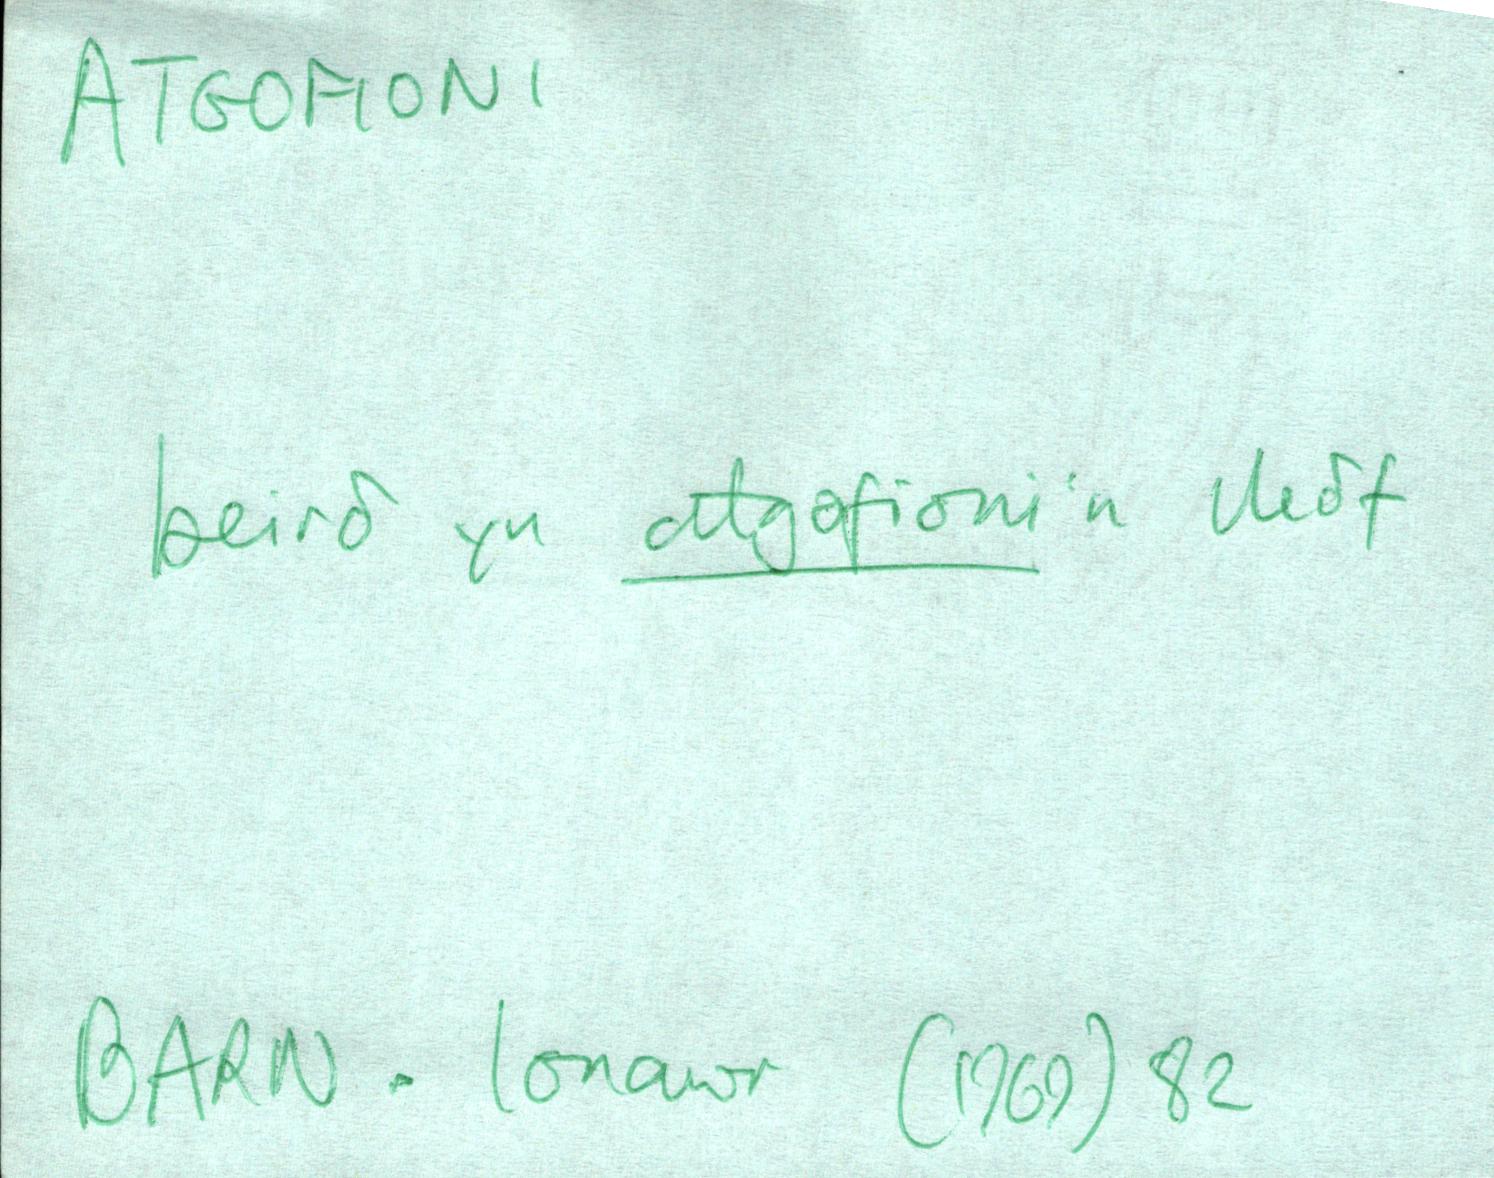 ATGOFIONI
beirδ yn atgofioni'n lleδf
BARN. Ionawr (1969) 82